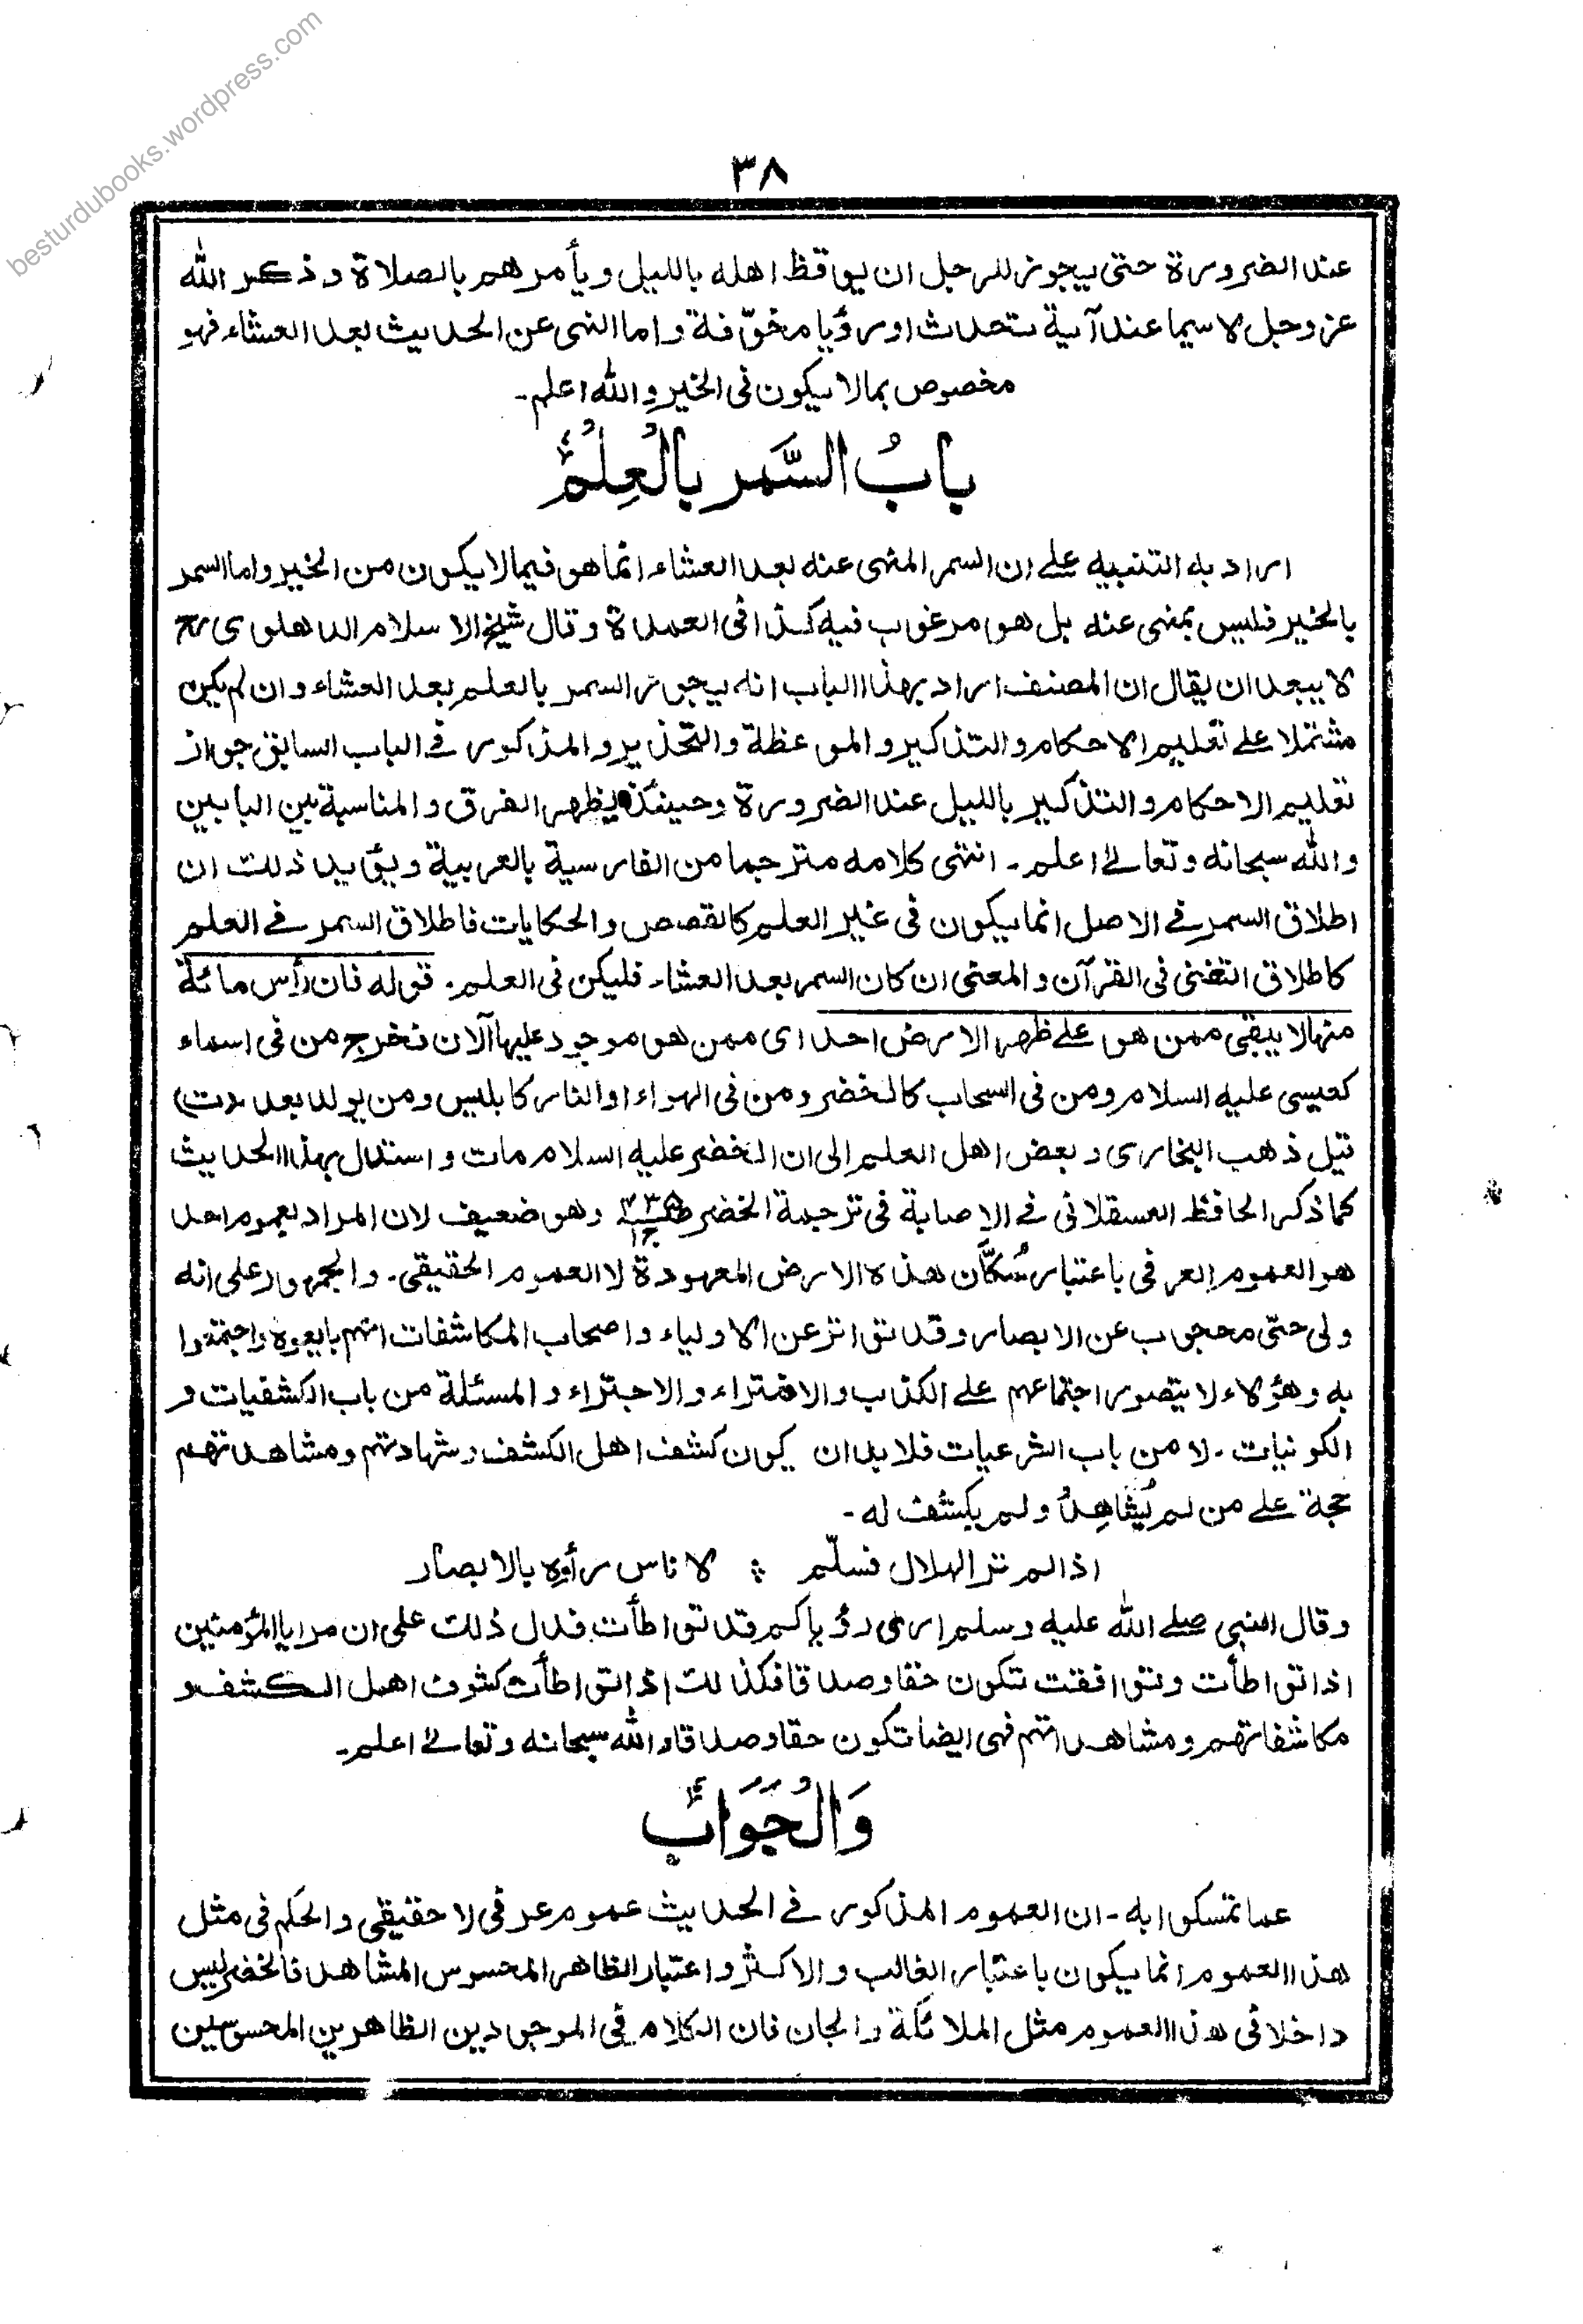 besturdubooks.wordpress.com
٣٨
عند الضرورة حتى يجوز للرجل ان يوقظ اهله بالليل ويأمرهم بالصلاة وذكر الله
عز وجل لا سيما عند آية تحدث او رؤيا مخوّفة واما النهى عن الحديث بعد العشاء فهو
مخصوص بمالا يكون فى الخير والله اعلم۔
بابُ السَّمر بالْعِلْمِ
اراد به التنبيه على ان السمر المنهى عنه بعد العشاء انما هو فيما لا يكون من الخير واما السمر
بالخير فليس بمنهى عنه بل هو مرغوب فيه كذا فى العمدة وقال شيخ الاسلام الدهلوى رح
لا يبعد ان يقال ان المصنف اراد بهذا الباب انه يجوز السمر بالعلم بعد العشاء وان لم يكن
مشتملا على تعليم الاحكام والتذكير والموعظة والتحذير والمذكور فى الباب السابق جواز
تعليم الاحكام والتذكير بالليل عند الضرورة وحينئذ يظهر الفرق والمناسبة بين البابين
والله سبحانه وتعالى اعلم۔ انتهى كلامه مترجما من الفارسية بالعربية ويؤيد ذلك ان
اطلاق السمر فى الاصل انما يكون فى غير العلم كالقصص والحكايات فاطلاق السمر فى العلم
كاطلاق التغنى فى القرآن والمعنى ان كان السمر بعد العشاء فليكن فى العلم۔ قوله فان رأس مائة
منها لا يبقى ممن هو على ظهر الارض احد اى ممن هو موجود عليها الآن فخرج من فى اسماء
كعيسى عليه السلام ومن فى السحاب كالخضر ومن فى الهواء او النار كابليس ومن يولد بعد (ت)
قيل ذهب البخارى وبعض اهل العلم الى ان الخضر عليه السلام مات واستدل بهذا الحديث
كما ذكر الحافظ العسقلانى فى الاصابة فى ترجمة الخضر وهو ضعيف لان المراد بعموم احد
هو العموم العرفى باعتبار سُكّان هذه الارض المعهودة لا العموم الحقيقى۔ والجمهور على انه
ولى حتّى محجوب عن الابصار وقد تواتر عن الاولياء واصحاب المكاشفات انهم بايعوه واجتمعوا
به وهؤلاء لا يتصور اجتماعهم على الكذب والافتراء والاجتراء والمسئلة من باب الكشفيات و
الكونيات۔ لا من باب الشرعيات فلا بد ان يكون كشف اهل الكشف وشهادتهم ومشاهدتهم
حجة على من لم يُشاهِدْ ولم يكشف له۔
اذا لم تر الهلال فسلّم ؞ لاناس رأوه بالابصار
وقال النبى صلى الله عليه وسلم ارى رؤياكم قد تواطأت فدل ذلك على ان مرايا المؤمنين
اذا تواطأت وتوافقت تكون حقا وصدقا فكذلك اذا تواطأت كشوف اهل الكشف و
مكاشفاتهم ومشاهداتهم فهى ايضا تكون حقا وصدقا والله سبحانه وتعالى اعلم۔
وَالْجَوَابُ
عما تمسكوا به۔ ان العموم المذكور فى الحديث عموم عرفى لا حقيقى والحكم فى مثل
هذا العموم انما يكون باعتبار الغالب والاكثر واعتبار الظاهر المحسوس المشاهد فالخضر ليس
داخلا فى هذا العموم مثل الملائكة والجان فان الكلام فى الموجودين الظاهرين المحسوسين